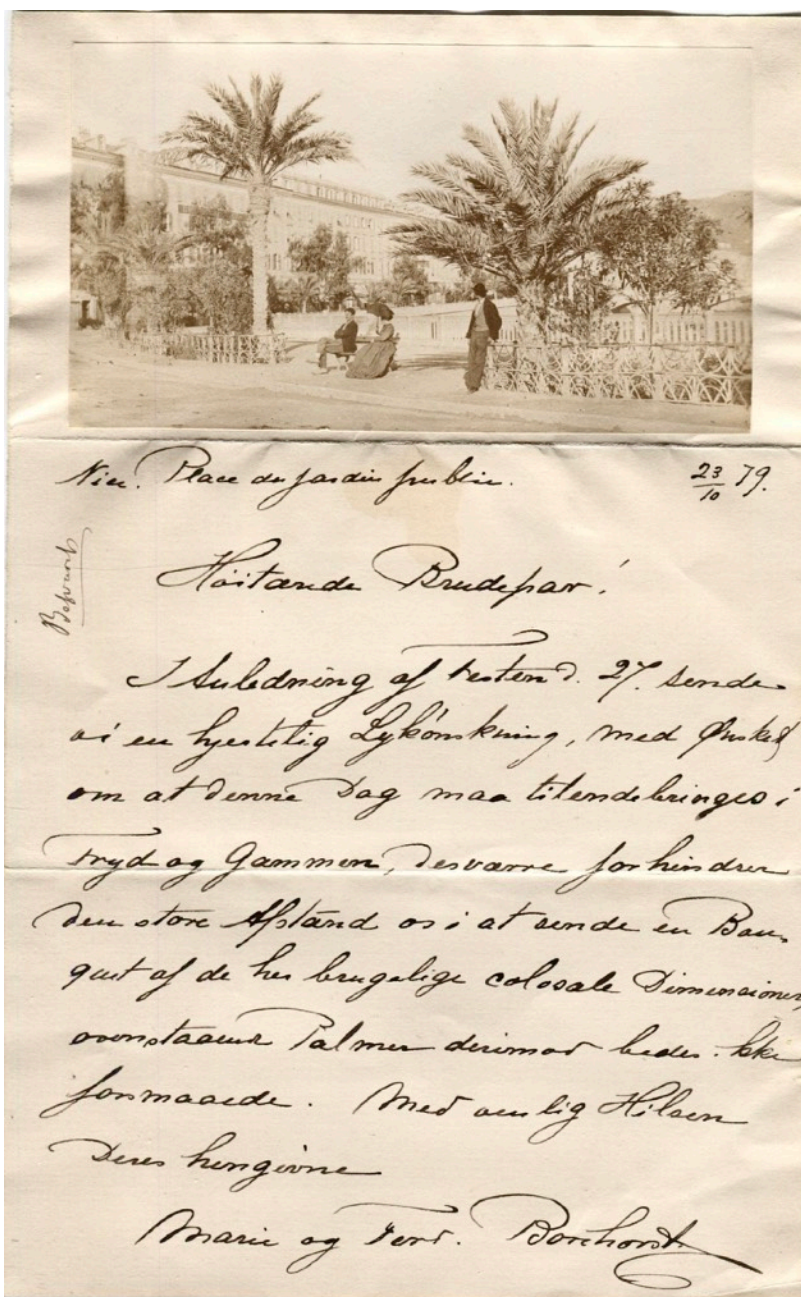 Nice. Place du jardin public. 23/10 79.
Besvaret
Høitærede Brudepar!
I Anledning af Festen d. 27. sende
vi en hjertelig Lykönskning, med Ønsket
om at denne Dag maa tilendebringes i
Fryd og Gammen, desværre forhindrer
den store Afstand os i at sende en Bou-
quet af de her brugelige colosale Dimensioner,
ovenstaaende Palmer derimod bedes ikke
forsmaaede. Med venlig Hilsen
Deres hengivne
Marie og Ferd. Borchorst